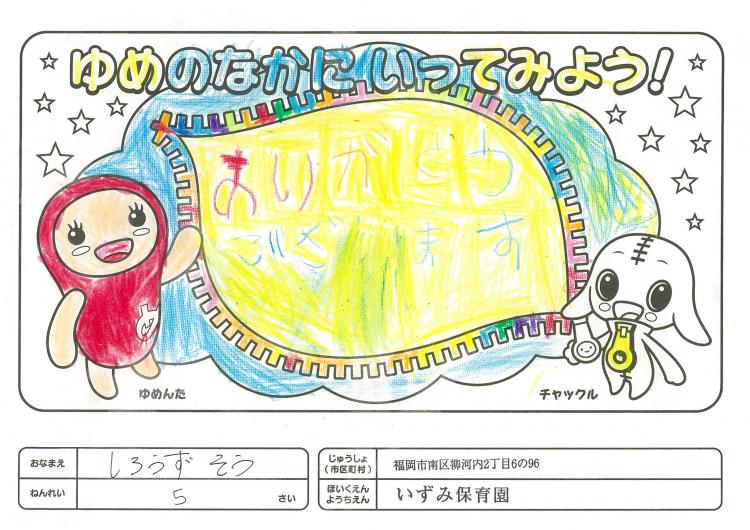 ゆめのなかにいってみよう!
ありがとう
ございます
ゆめんた
チャックル
おなまえ しろうず そう
ねんれい 5 さい
じゅうしょ
(市区町村) 福岡市南区柳河内2丁目6の96
ほいくえん
ようちえん いずみ保育園